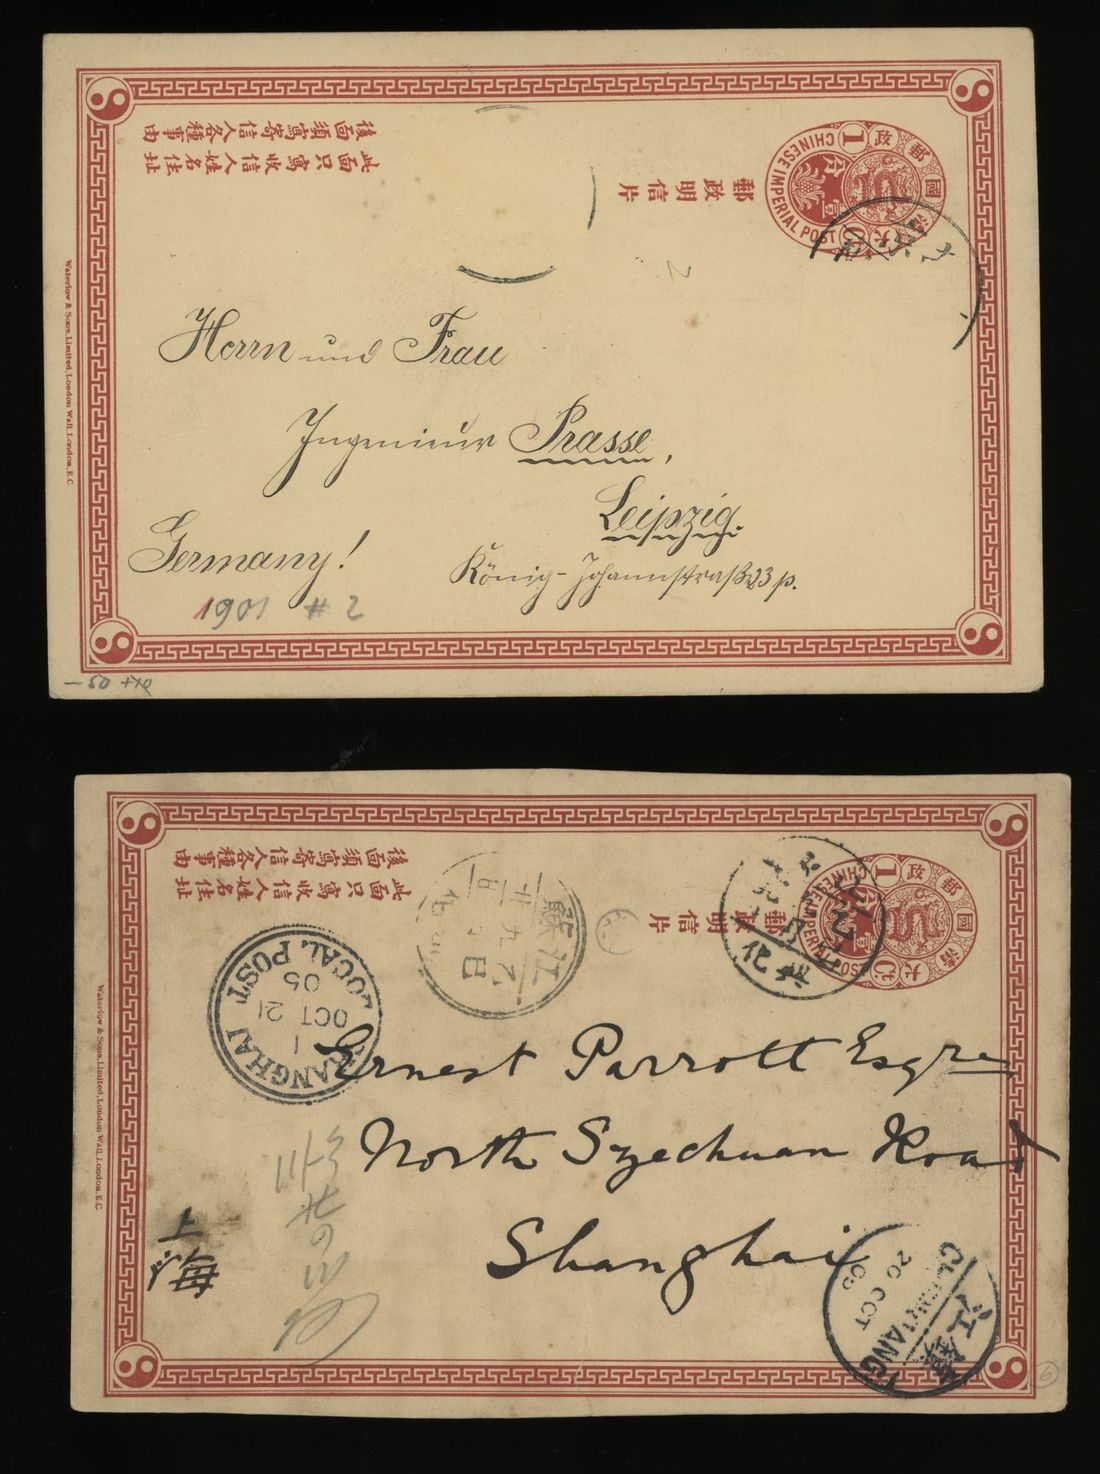 後面須寫寄信人各種事由
此面只寫收信人姓名住址
郵政明信片
大清國郵政
CHINESE IMPERIAL POST
1
壹分
Waterlow & Sons, Limited, London Wall, London, E.C.
Herrn und Frau
Ingenieur Prasse,
Leipzig.
Germany!
König-Johannstraße 23 p.
1901 # 2
2
- 50 +70
後面須寫寄信人各種事由
此面只寫收信人姓名住址
郵政明信片
大清國郵政
CHINESE IMPERIAL POST
1
Waterlow & Sons, Limited, London Wall, London, E.C.
江蘇
SHANGHAI LOCAL POST
1
OCT 21
05
Ernest Parrott Esqre
North Szechuan Road
Shanghai
上海
20 OCT
05
鎮江